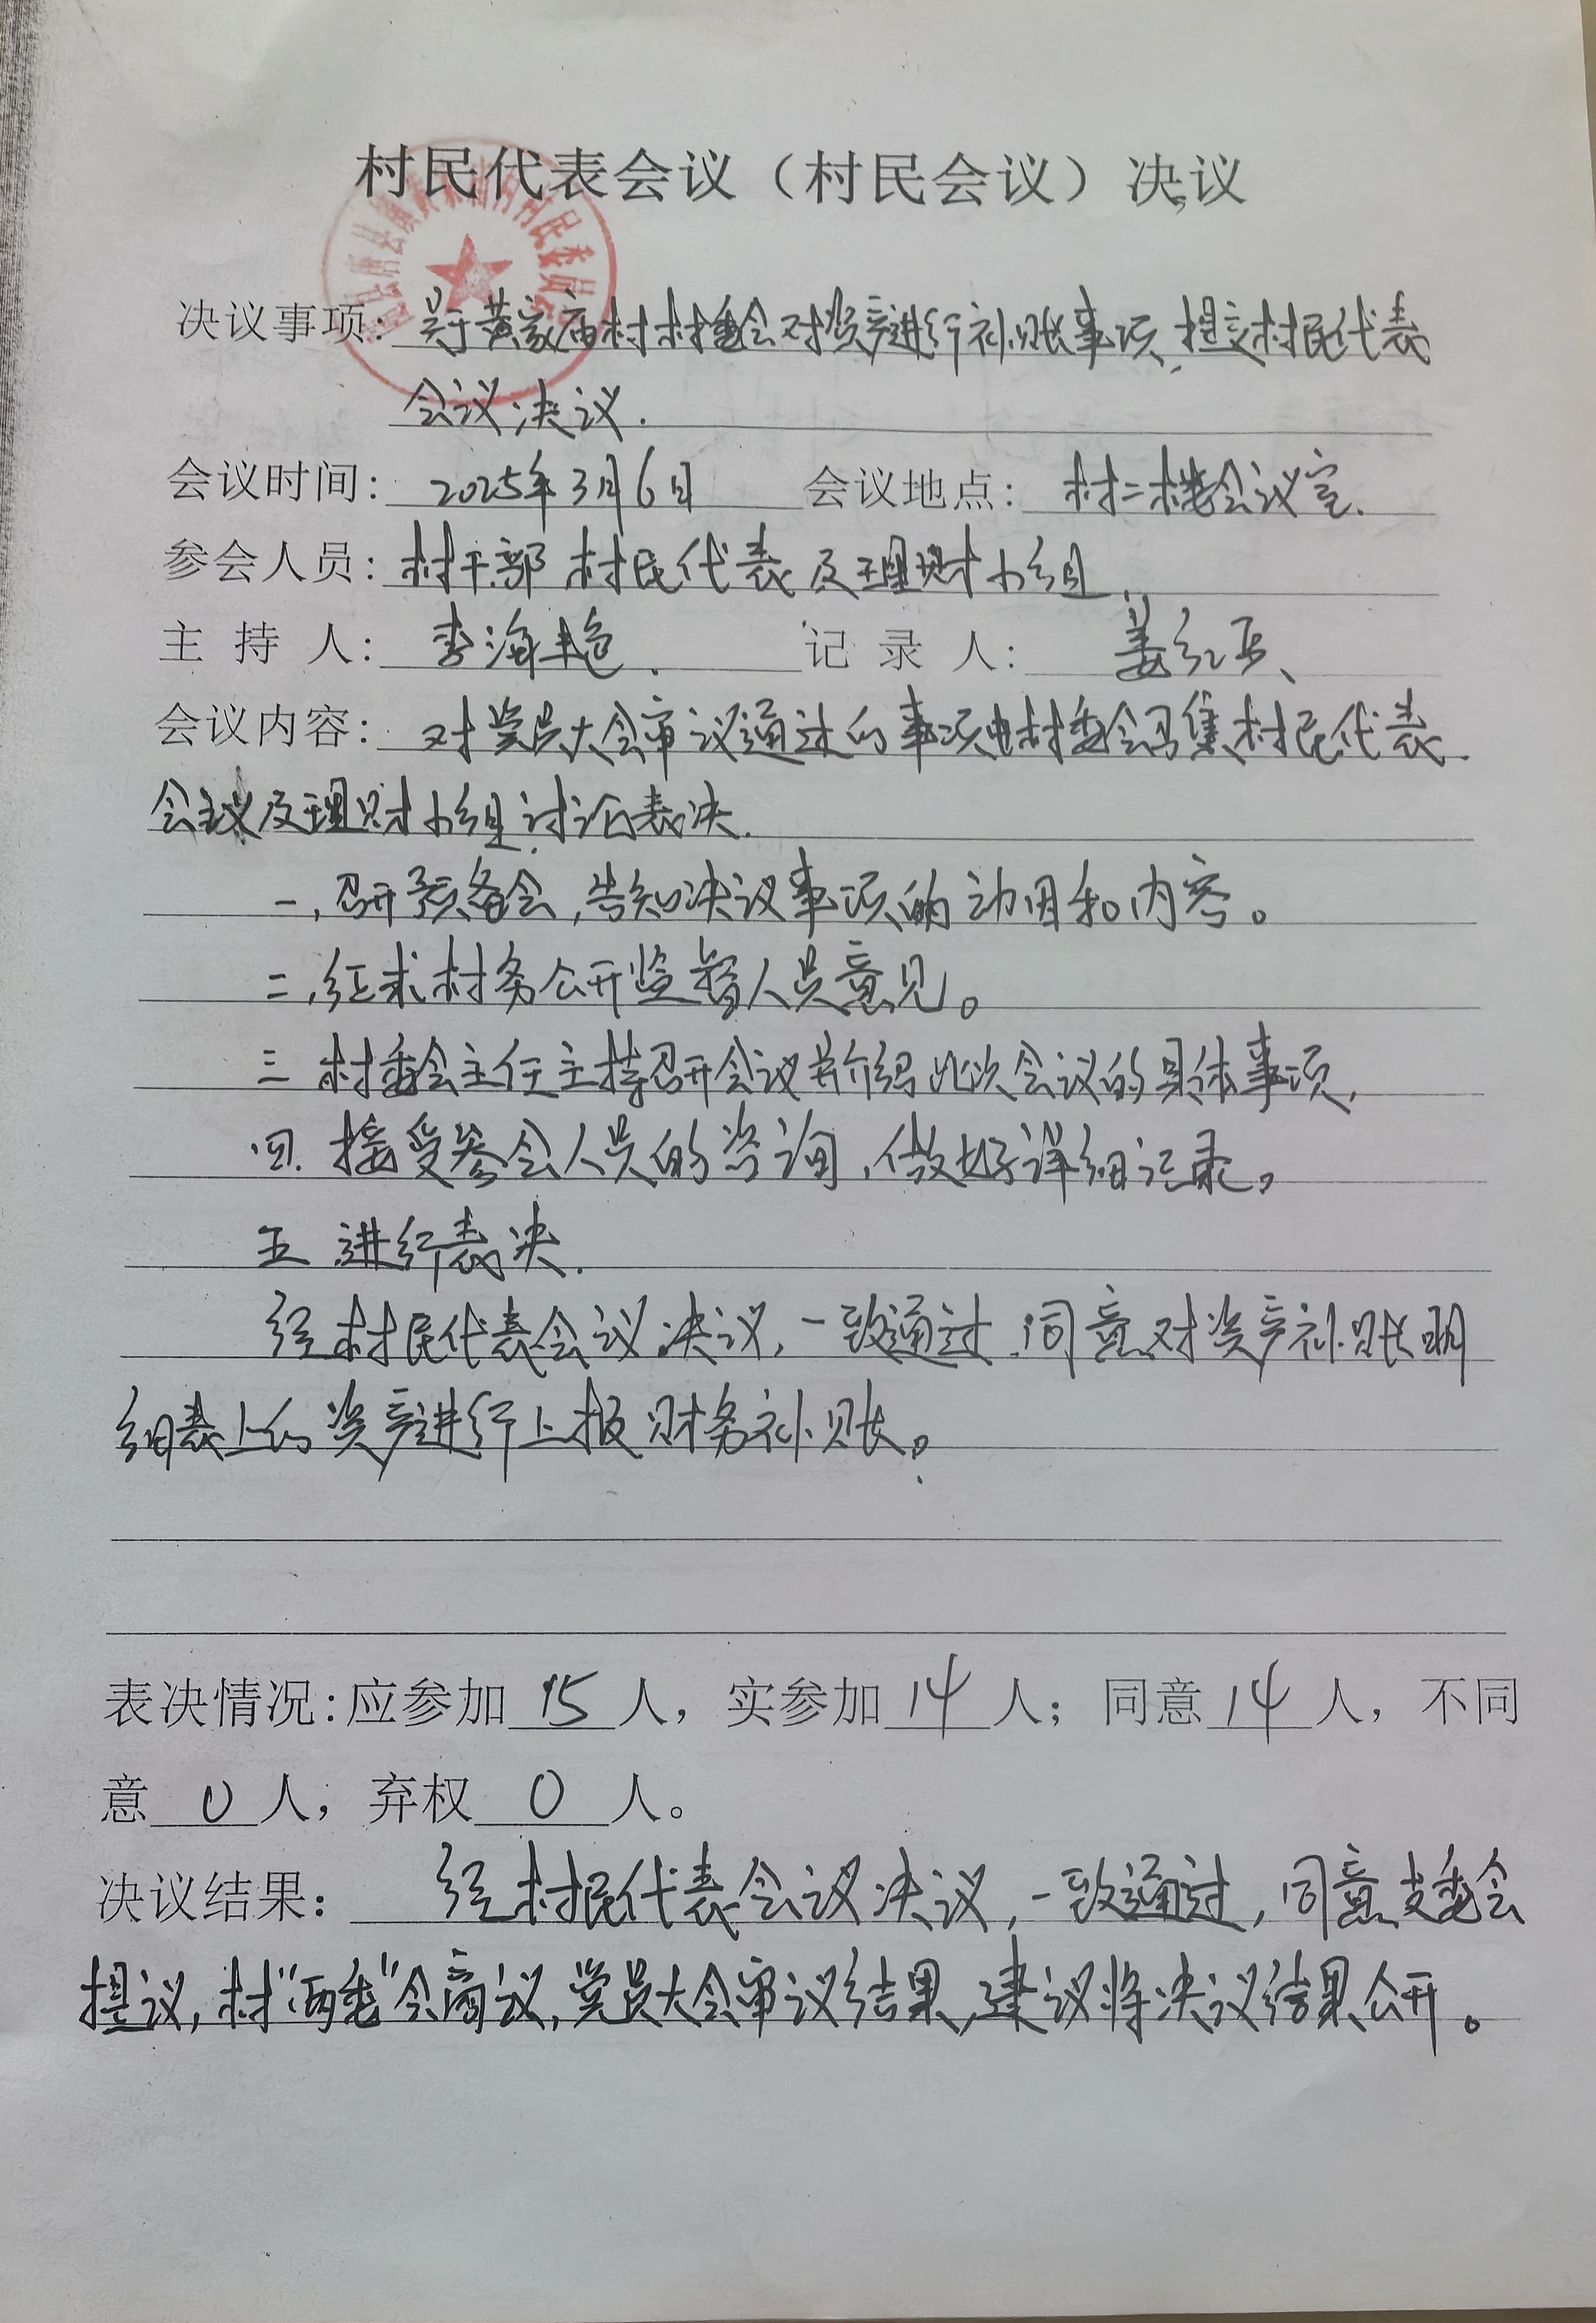 村民代表会议（村民会议）决议
决议事项：关于黄家庙村村委会对资产进行补账事项,提交村民代表
会议决议.
会议时间：2025年3月6日 会议地点：村二楼会议室.
参会人员：村干部 村民代表及理财小组.
主 持 人：李海艳. 记 录 人：姜红
会议内容：对党员大会审议通过的事项由村委会召集村民代表
会议及理财小组讨论表决.
一,召开预备会,告知决议事项的动因和内容。
二,征求村务公开监督人员意见。
三 村委会主任主持召开会议并介绍此次会议的具体事项,
四.接受参会人员的咨询,做好详细记录。
五 进行表决.
经村民代表会议决议,一致通过,同意对资产补账明
细表上的资产进行上报财务补账。
表决情况：应参加 15 人，实参加 14 人；同意 14 人，不同
意 0 人，弃权 0 人。
决议结果：经村民代表会议决议,一致通过,同意支委会
提议,村“两委”会商议,党员大会审议结果,建议将决议结果公开。